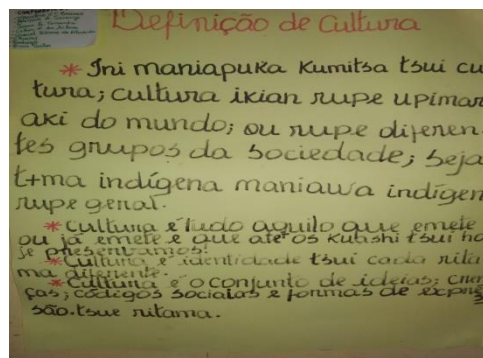 Definição de Cultura
* Ini maniapuka Kumitsa tsui cu
tura; cultura ikian rupe upimar
aki do mundo; ou rupe diferen
tes grupos da sociedade; seja
t+ma indígena maniawa indígen
rupe geral.
* Cultura é tudo aquilo que emete
ou já emete e que até os kuashi tsui ho
je presentramos!
* Cultura é identidade tsui cada rita
ma diferente.
* Cultura é o conjunto de ideias; cren
ças; códigos sociais e formas de expre
são.tsue ritama.